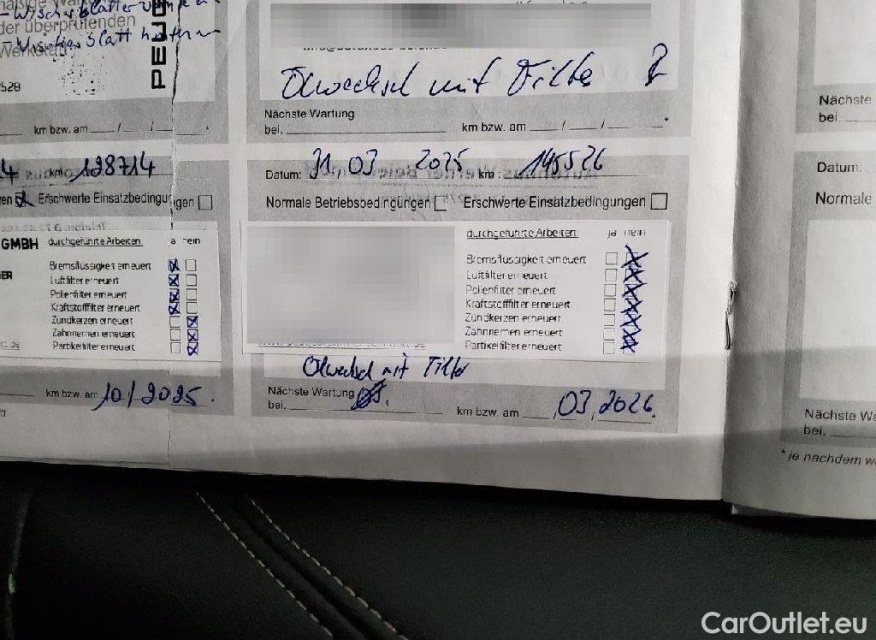 der überprüfenden
528
km bzw. am ___/___/___ *
km: 128714
Erschwerte Einsatzbedingungen
GMBH durchgeführte Arbeiten: ja nein
Bremsflüssigkeit erneuert
Luftfilter erneuert
Pollenfilter erneuert
Kraftstofffilter erneuert
Zündkerzen erneuert
Zahnriemen erneuert
Partikelfilter erneuert
km bzw. am 10/2025.
PEUG
Ölwechsel mit Filter
Nächste Wartung
bei. km bzw. am ___/___/___ *
Datum: 31.03 2025 km: 145526
Normale Betriebsbedingungen Erschwerte Einsatzbedingungen
durchgeführte Arbeiten: ja nein
Bremsflüssigkeit erneuert
Luftfilter erneuert
Pollenfilter erneuert
Kraftstofffilter erneuert
Zündkerzen erneuert
Zahnriemen erneuert
Partikelfilter erneuert
Ölwechsel mit Filter
Nächste Wartung
bei. km bzw. am 03/2026.
Nächste
bei
Datum:
Normale
Nächste Wa
bei.
*je nachdem w
CarOutlet.eu